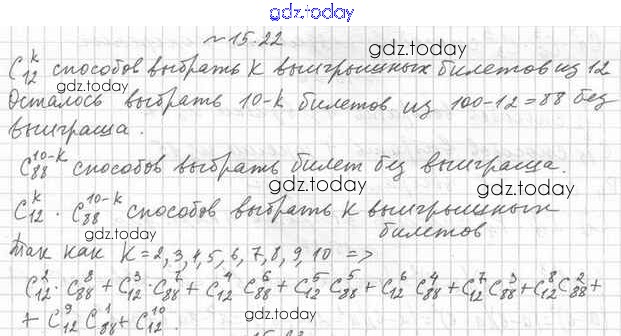 gdz.today
№ 15.22
gdz.today
C₁₂ᵏ способов выбрать k выигрышных билетов из 12
gdz.today
Осталось выбрать 10-k билетов из 100-12=88 без
выиграша.
gdz.today
C₈₈¹⁰⁻ᵏ способов выбрать билет без выиграша.
gdz.today
gdz.today
C₁₂ᵏ · C₈₈¹⁰⁻ᵏ способов выбрать k выигрышных
билетов
gdz.today
Так как K=2,3,4,5,6,7,8,9,10 =>
C₁₂² · C₈₈⁸ + C₁₂³ · C₈₈⁷ + C₁₂⁴ C₈₈⁶ + C₁₂⁵ C₈₈⁵ + C₁₂⁶ C₈₈⁴ + C₁₂⁷ C₈₈³ + C₁₂⁸ C₈₈² +
+ C₁₂⁹ C₈₈¹ + C₁₂¹⁰.
gdz.today